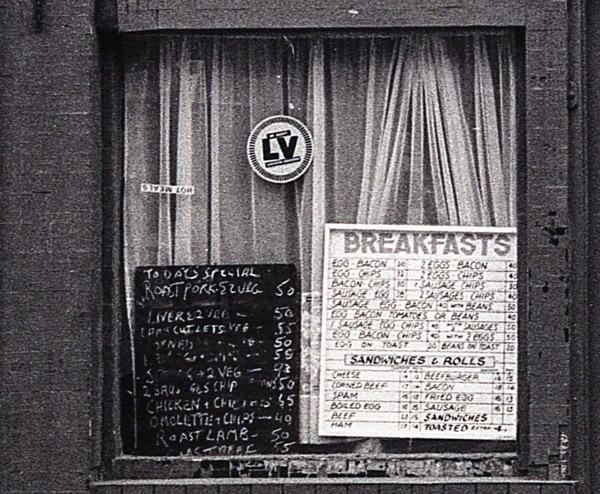 LV
HOT MEALS
TODAYS SPECIAL
ROAST PORK & 2 VEG 50
LIVER & 2 VEG - 50
LAMB CUTLETS VEG - 55
50
55
2 VEG -
2 SAUSAGES CHIP BEANS 50
CHICKEN + CHIPS 45
OMOLETTE + CHIPS - 40
ROAST LAMB - 50
ROAST BEEF 55
BREAKFASTS
EGG BACON 30 2 EGGS BACON 40
EGG CHIPS 2 EGGS CHIPS
BACON CHIPS 30 1 SAUSAGE CHIPS
SAUSAGE EGG 28 2 SAUSAGES CHIPS
SAUSAGE EGG BACON WITH BEANS
EGG BACON TOMATOES OR BEANS 40
1 SAUSAGE EGG CHIPS 40 2 SAUSAGES 50
EGG BACON CHIPS WITH 2 EGGS 50
EGG ON TOAST 20 BEANS ON TOAST 20
SANDWICHES & ROLLS
CHEESE BEEFBURGER
CORNED BEEF BACON
SPAM FRIED EGG
BOILED EGG SAUSAGE
BEEF SANDWICHES
HAM TOASTED EXTRA